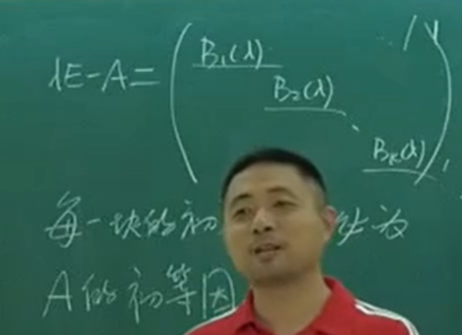 λE-A= B₁(λ)
B₂(λ)
Bₖ(λ)
每一块的初
A的初等因